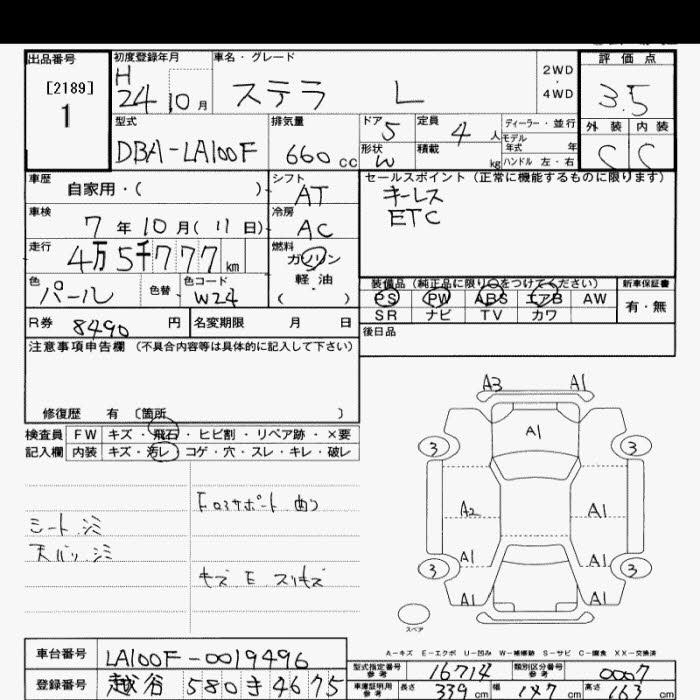 出品番号
[2189]
1
初度登録年月
H
24 10 月
車名・グレード
ステラ L
2WD
・
4WD
評価点
3.5
型式
DBA-LA100F
排気量
660 cc
ドア
5
定員
4 人
形状
W
積載
kg
ディーラー・並行
モデル
年式 年
ハンドル 左・右
外装 内装
C C
車歴
自家用・( )
シフト
AT
セールスポイント (正常に機能するものに限ります)
キーレス
ETC
車検
7 年 10 月 ( 11 日)
冷房
AC
走行
4万5千777 km
燃料
ガソリン
軽・油
( )
色
パール
色替
色コード
W24
装備品 (純正品に限り○をつけてください)
PS PW ABS エアB AW
SR ナビ TV カワ
新車保証書
有・無
R券
8490 円
名変期限 月 日
後日品
注意事項申告欄 (不具合内容等は具体的に記入して下さい)
修復歴 有 〔箇所 〕
検査員
記入欄
FW キズ・飛石・ヒビ割・リペア跡・×要
内装 キズ・汚レ・コゲ・穴・スレ・キレ・破レ
シート シミ
天バリ シミ
FロアサポートｰＨ 曲り
キズ E スリキズ
A3 A1
A1
3 3
A2 A1
A1 A1
3 3
A1 A1
スペア
A-キズ E-エクボ U-凹み W-補修跡 S-サビ C-腐食 XX-交換済
車台番号
LA100F-0019496
登録番号
越谷 580 き 4675
型式指定番号
参考
16714
類別区分番号
参考
0007
車庫証明用
参考
長さ 339 cm 幅 147 cm 高さ 163 cm